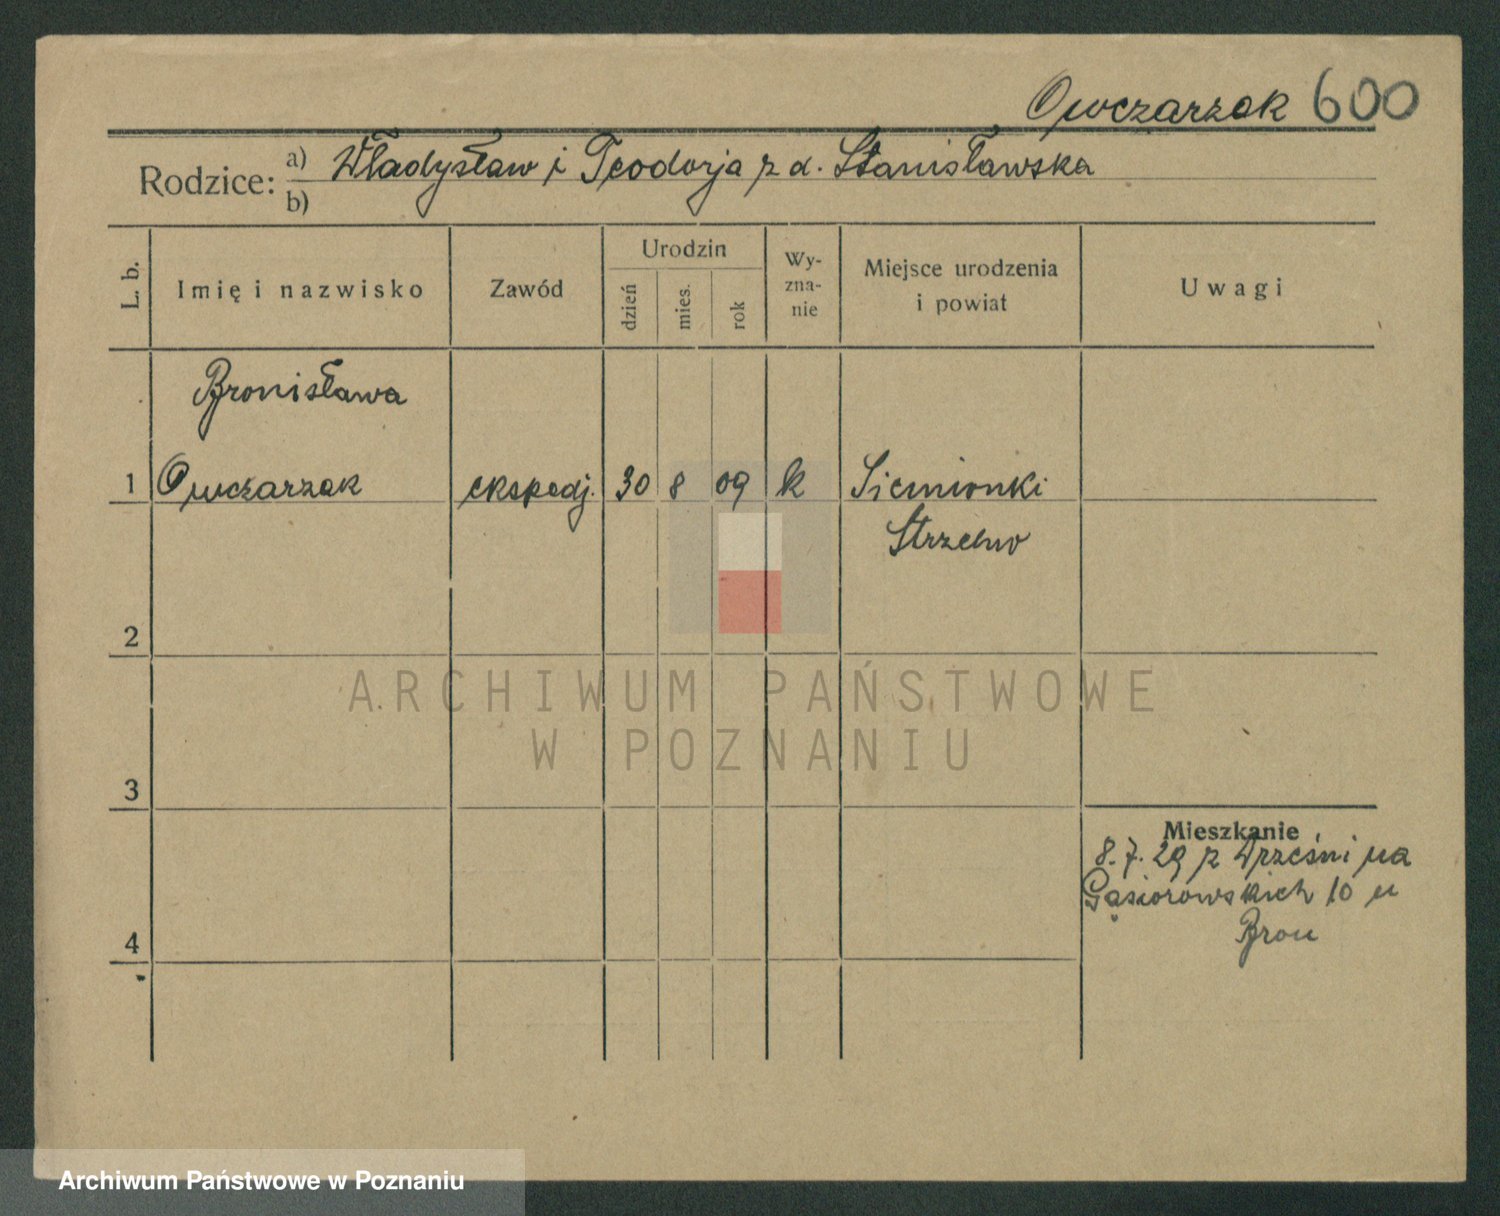 Owczarzak 600
Rodzice: a) Władysław i Teodorja z d. Stanisławska
b)
L. b.
Imię i nazwisko
Zawód
Urodzin
dzień
mies.
rok
Wy-
zna-
nie
Miejsce urodzenia
i powiat
Uwagi
Bronisława
1 Owczarzak ekspedj. 30 8 09 k Siemionki
Strzelno
2
3
4
Mieszkanie
8.7.29 z Wrześni na
Gąsiorowskich 10 u
Brou
ARCHIWUM PAŃSTWOWE
W POZNANIU
Archiwum Państwowe w Poznaniu